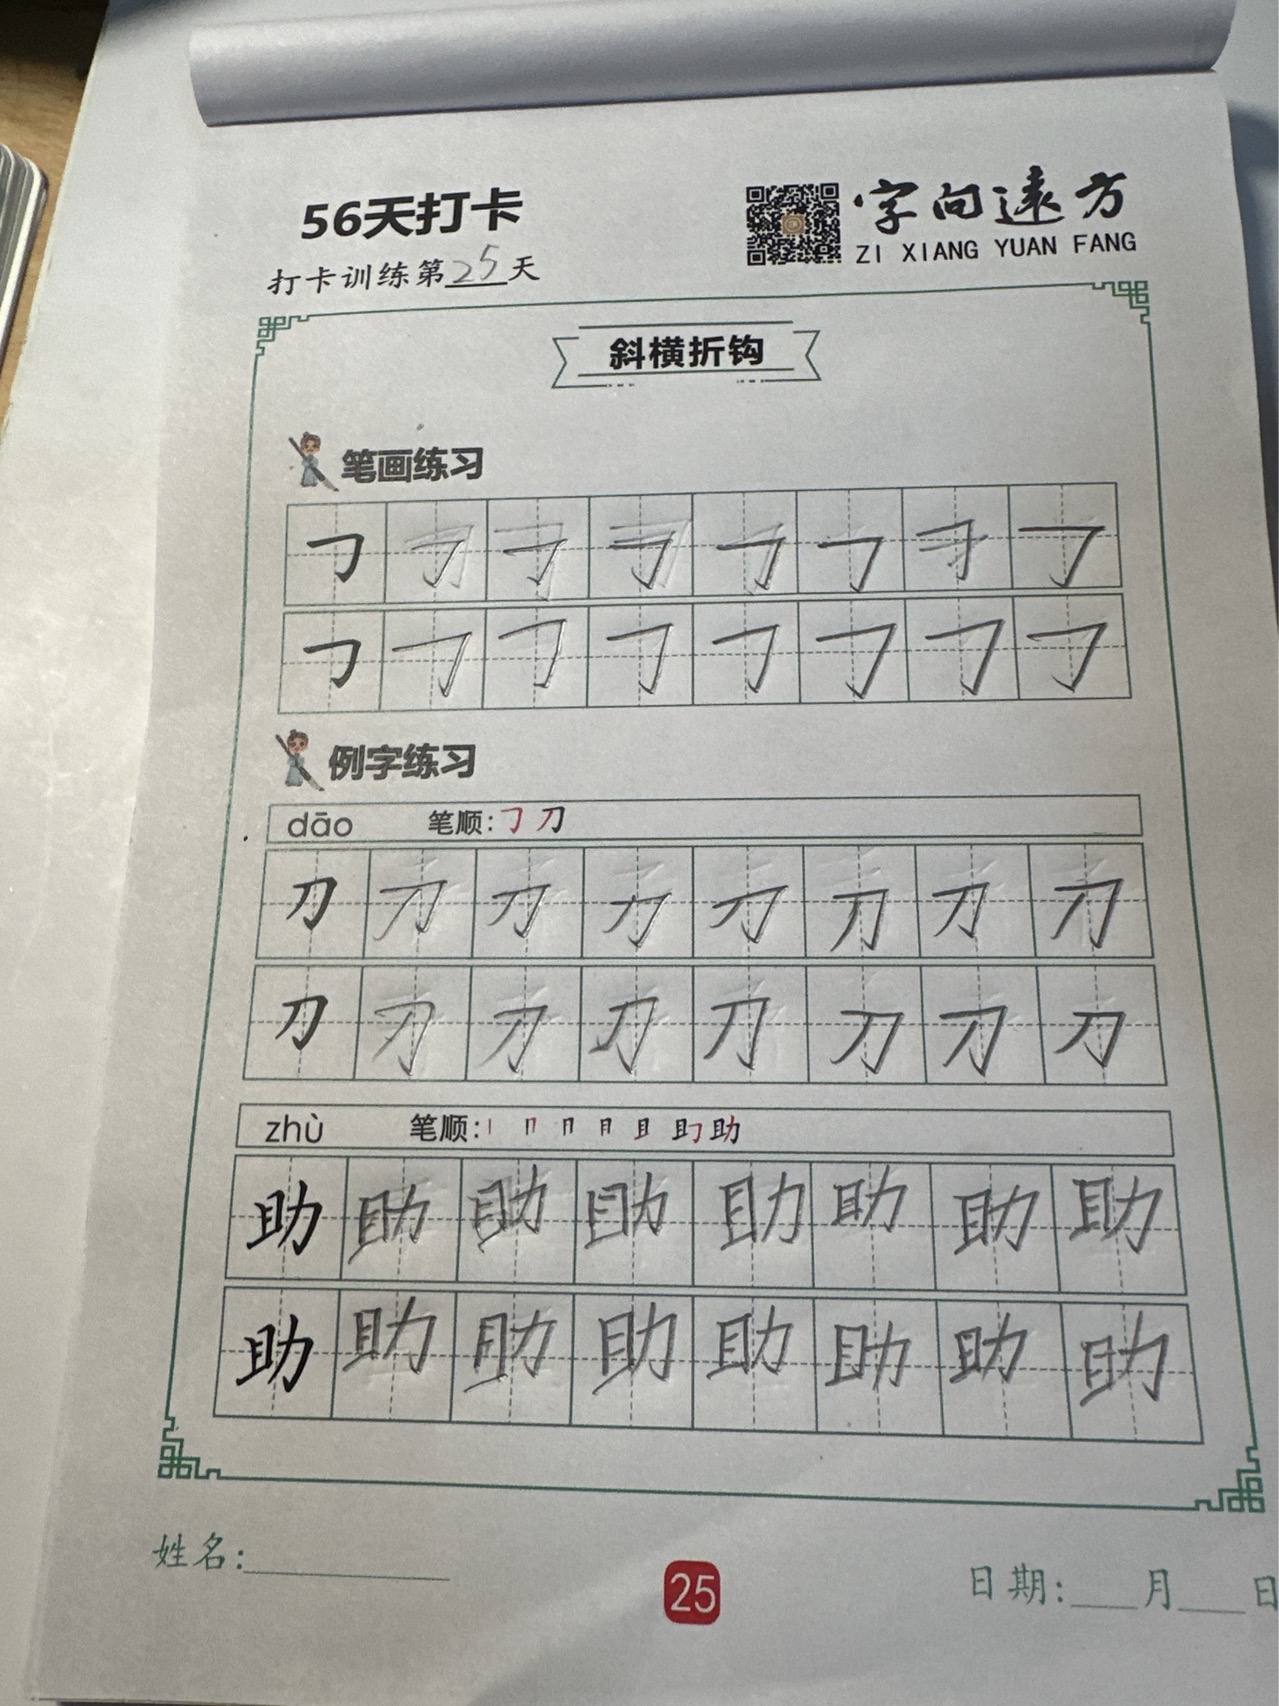 56天打卡
字向遠方
ZI XIANG YUAN FANG
打卡训练第25天
斜横折钩
笔画练习
例字练习
dāo 笔顺: 𠃌 刀
刀 刀 刀 刀 刀 刀 刀 刀
刀 刀 刀 刀 刀 刀 刀 刀
zhù 笔顺: 丨 冂 冂 月 且 助 助
助 助 助 助 助 助 助 助
助 助 助 助 助 助 助 助
姓名:
25
日期: 月 日